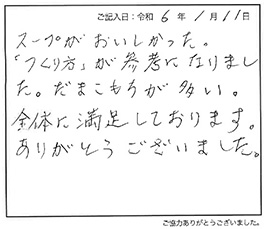 ご記入日：令和 6 年 1 月 11 日
スープがおいしかった。
「つくり方」が参考になりまし
た。だまこもちが多い。
全体に満足しております。
ありがとうございました。
ご協力ありがとうございました。